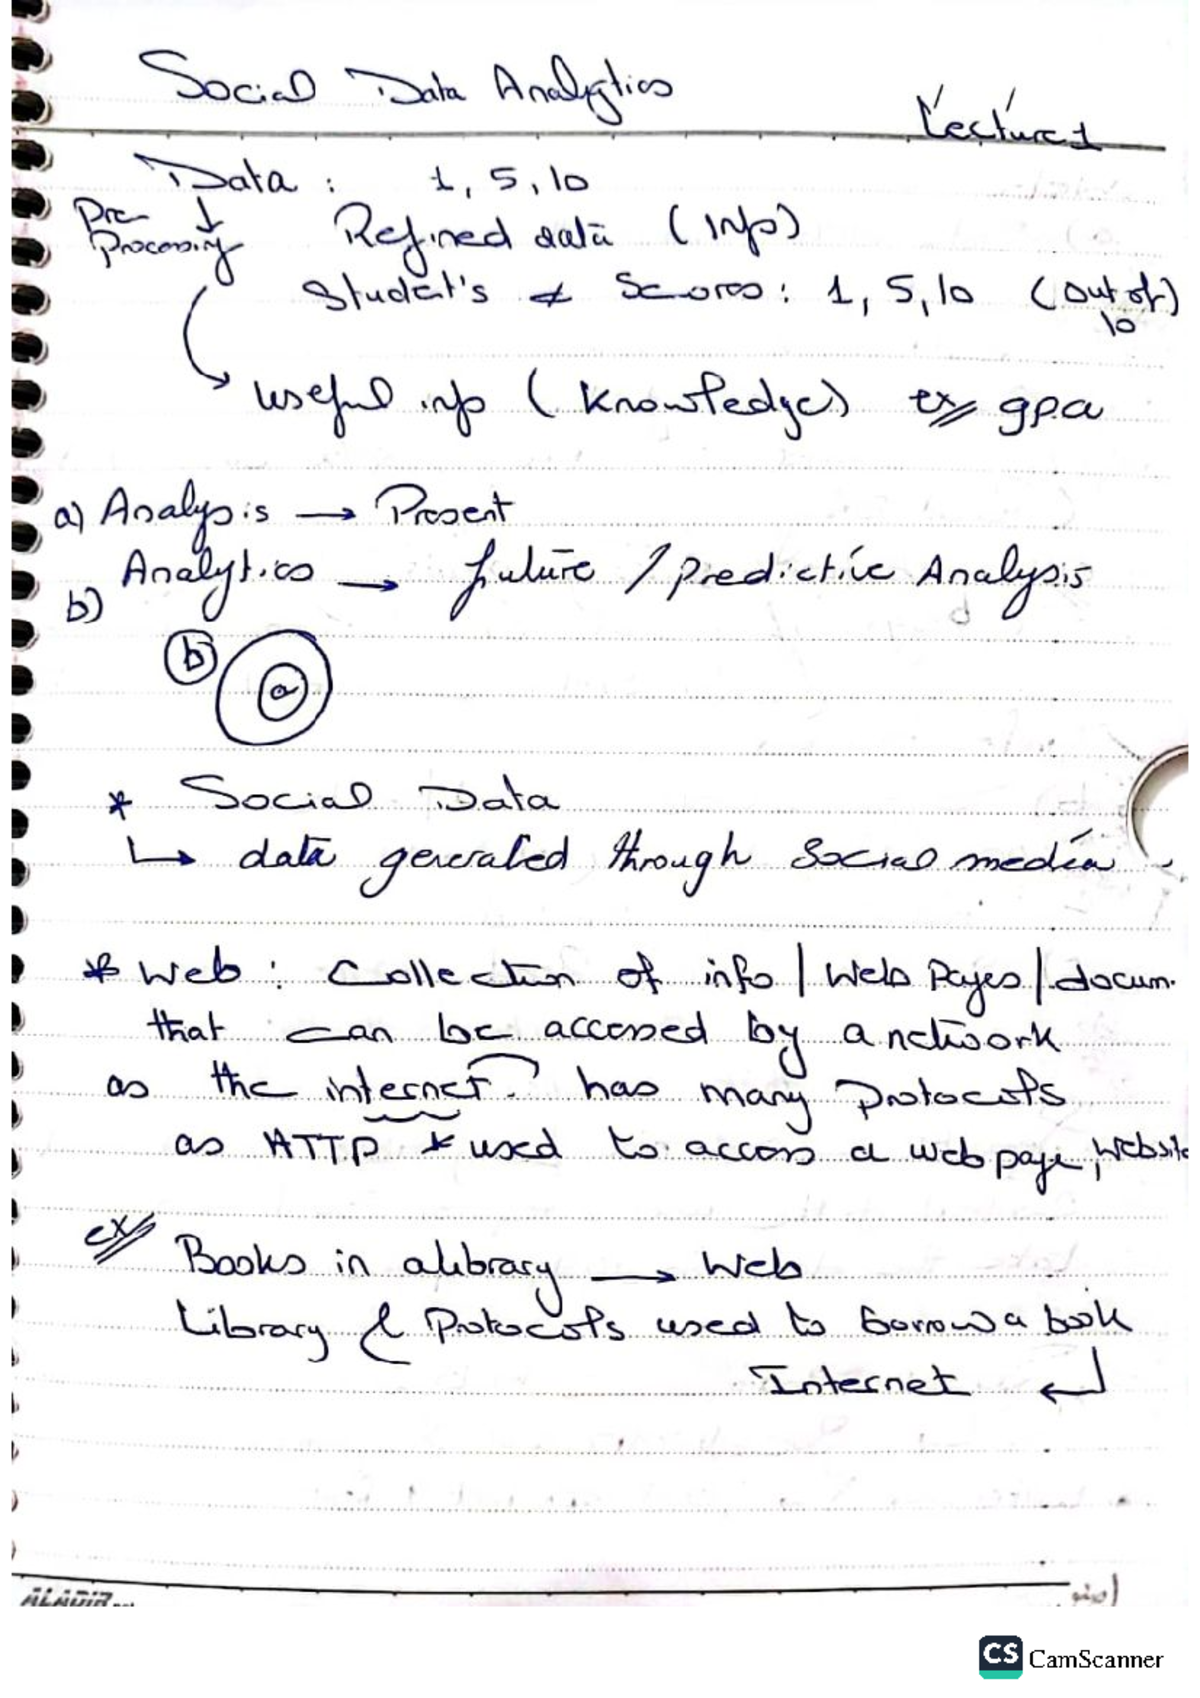 Social Data Analytics
Lecture 1
Data : 1, 5, 10
Pre-
Processing
Refined data (Info)
Student's Scores : 1, 5, 10 (out of)
10
useful info (Knowledge) ex gpa
a) Analysis → Present
Analytics → future / predictive Analysis
b)
b
a
* Social Data
↳ data generated through Social media
* Web : Collection of info | Web Pages | docum.
that can be accessed by a network
as the internet. has many Protocols
as HTTP * used to access a web page, website
ex
Books in a library → Web
Library & Protocols used to borrow a book
Internet ↵
ALADIB
CS CamScanner